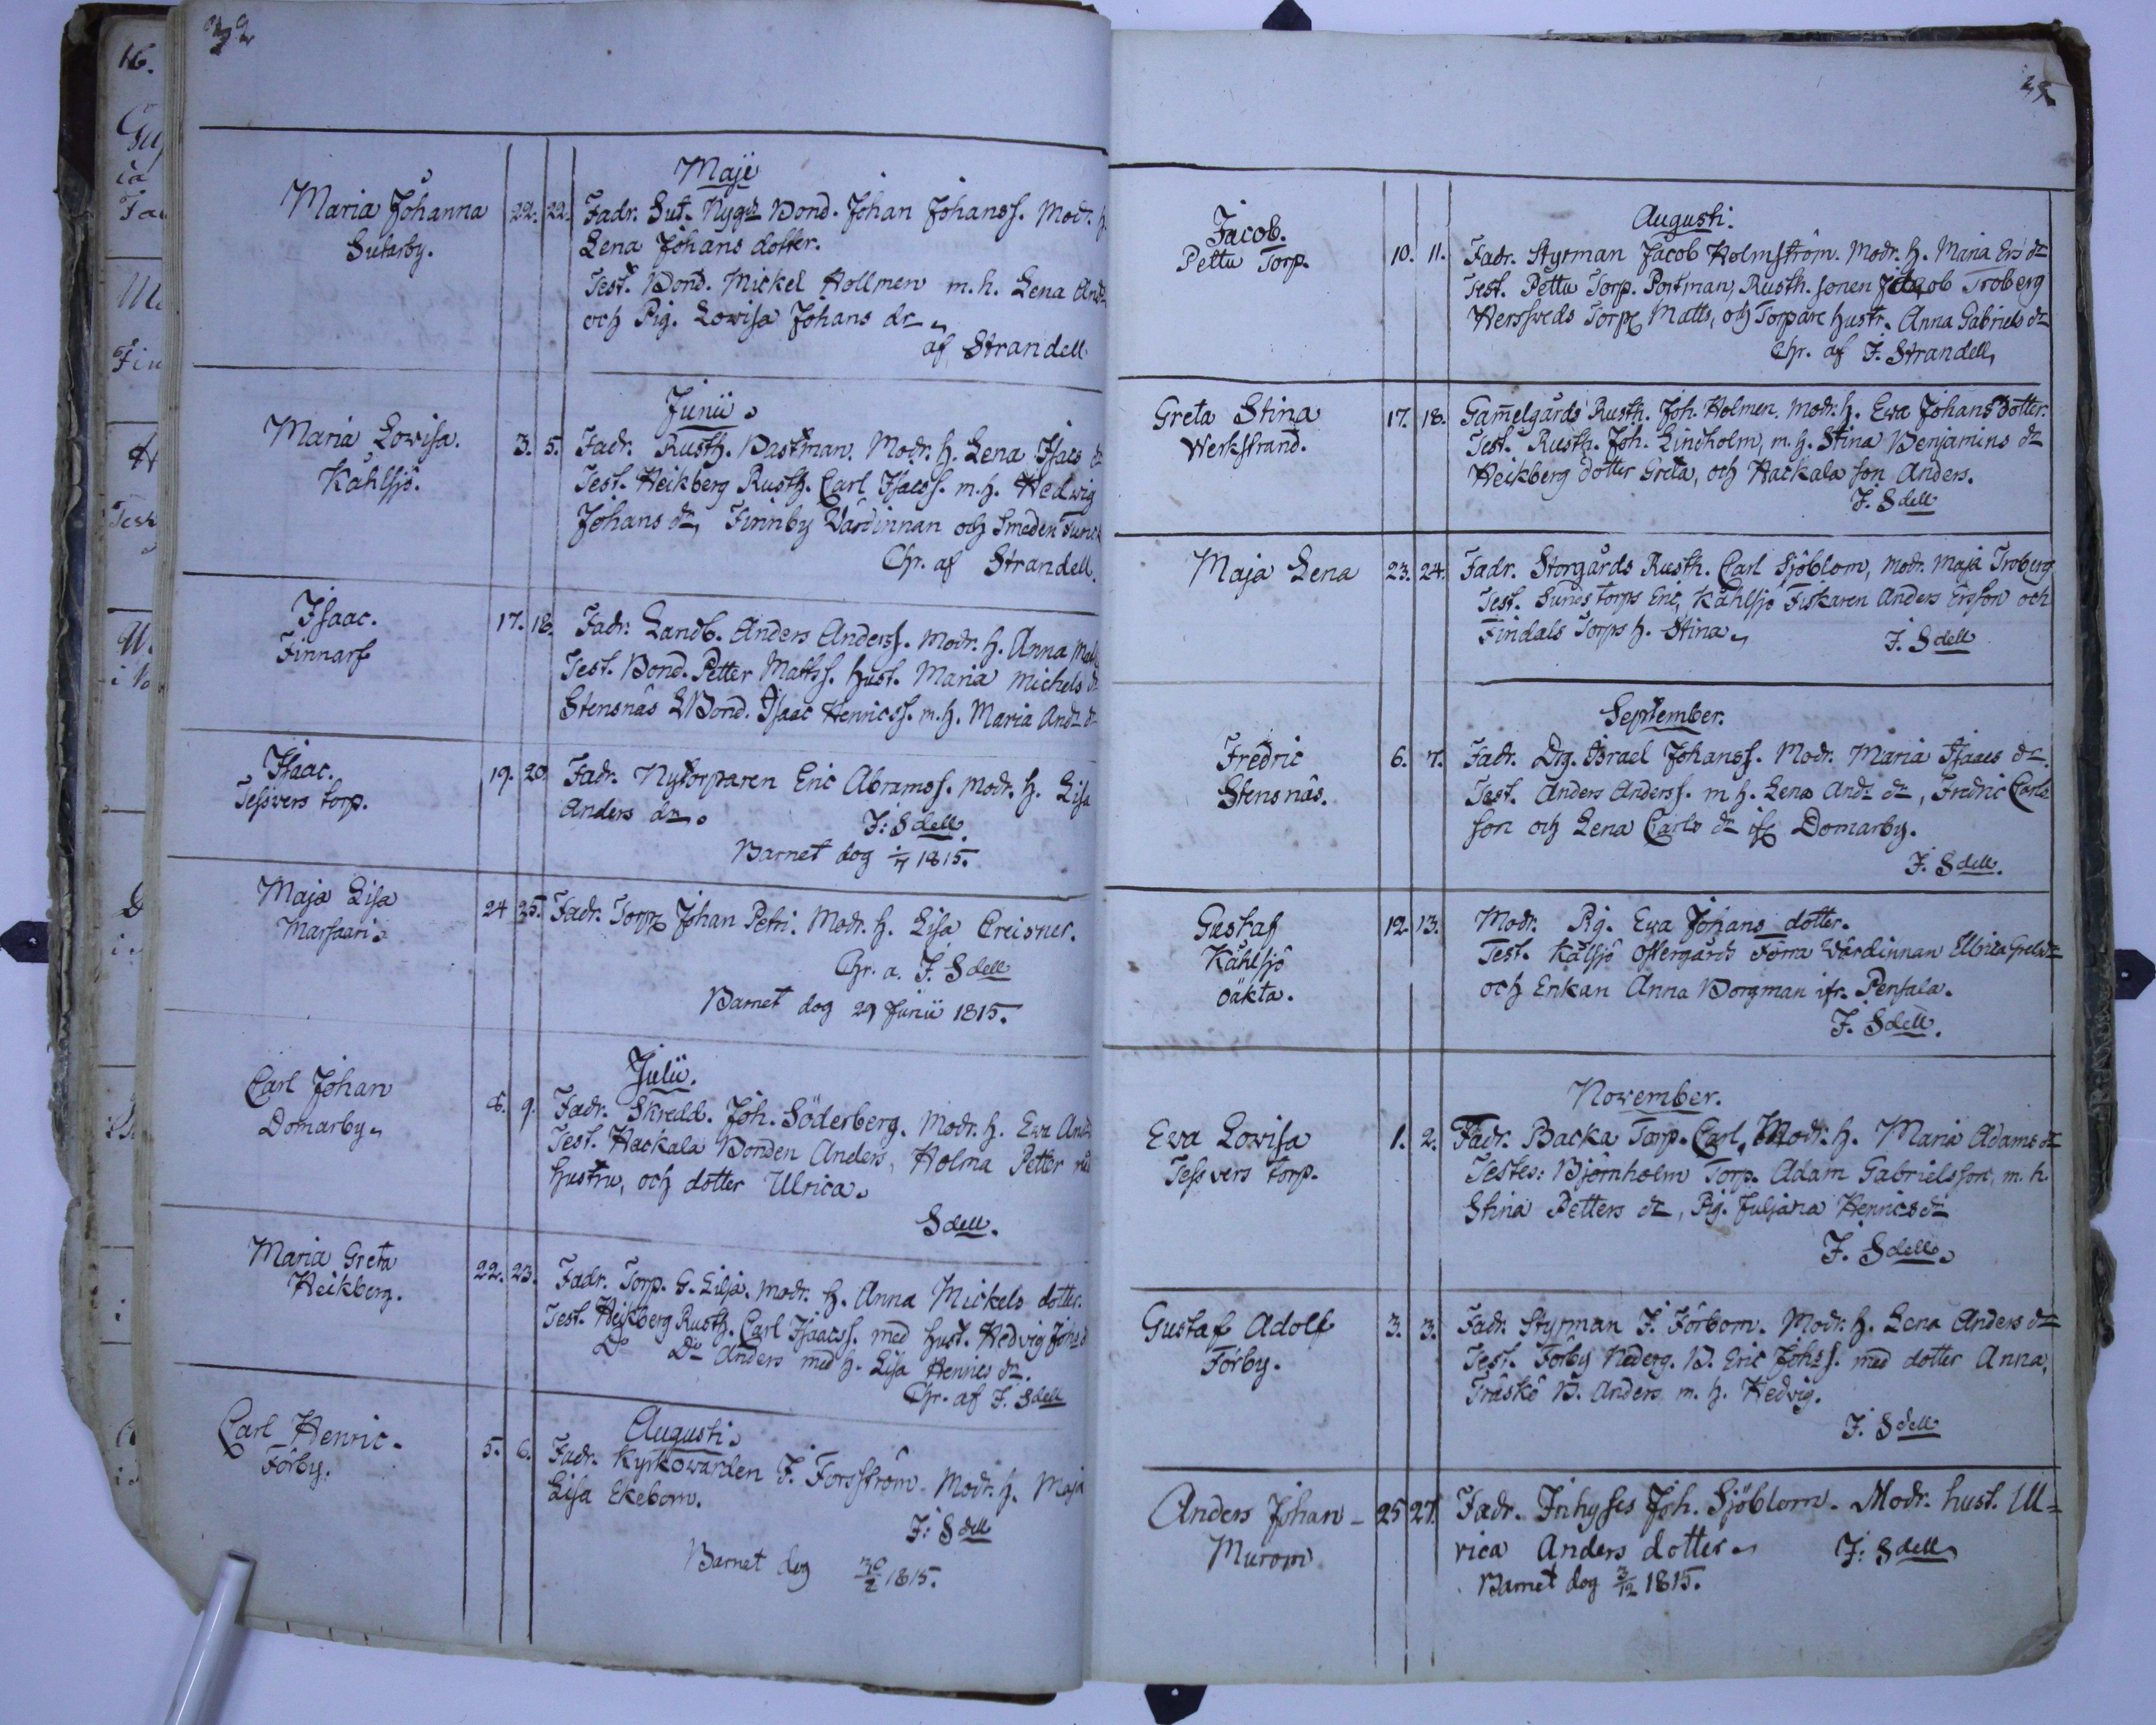 Maji
Maria Johanna 22. 22. Fadr. Sut. Nygds Bond. Johan Johanss. Modr. h.
Sutarby. Lena Johans dotter.
Test. Bond. Mickel Hollmen m. h. Lena And.
och Pig. Lowisa Johans dr
af Strandell
Junii
Maria Lowisa. 3. 5. Fadr. Rusth. Bastman. Modr. h. Lena Isacs dr
Kahlsjö. Test. Heikberg Rusth. Carl Isacss. m. h. Hedwig
Johans dr, Finnby Värdinnan och Smeden
Chr. af Strandell.
Isaac. 17. 18. Fadr: Landb. Anders Anderss. Modr. h. Anna
Finnarf Test. Bond. Petter Matss. hust. Maria Michels dr
Stensnäs Bond. Isaac Henricss. m. h. Maria And. dr
Isaac. 19. 20. Fadr. Nytorparen Eric Abramss. Modr. h. Lisa
Tessvers torp. Anders dr.
J: Sdell.
Barnet dog 1/7 1815.
Maja Lisa 24 25. Fadr. Torp. Johan Petri. Modr. h. Lisa Creisner.
Marsaari Chr. a. J. Sdell
Barnet dog 29 Junii 1815.
Julii.
Carl Johan 8. 9. Fadr. Skredd. Joh. Söderberg. Modr. h. Eva And.
Domarby Test. Hackala Bonden Anders, Holma Petter
hustru, och dotter Ulrica.
Sdell.
Maria Greta 22. 23. Fadr. Torp. G. Lilja. Modr. h. Anna Mickels dotter.
Heikberg. Test. Heikberg Rusth. Carl Isaacss. med hust. Hedvig Johs d
Do Do Anders med h. Lisa Henrics dr.
Chr. af J. Sdell
Augusti
Carl Henric 5. 6. Fadr. Kyrkowärden J. Forsström. Modr. h. Maja
Förby. Lisa Ekebom.
J: Sdell
Barnet dog 1815.
Augusti.
Jacob. 10. 11. Fadr. Styrman Jacob Holmström. Modr. h. Maria Ers dr
Pettu Torp. Test. Pettu Torp. Portman, Rusth. sonen Jacob Troberg
Torp. Matts, och Torpare hustr. Anna Gabriels dr
Chr. af J. Strandell,
Greta Stina 17. 18. Gam̅elgårds Rusth. Joh. Holmen. Modr. h. Ewa Johans dotter.
Werkstrand. Test. Rusth. Joh. Lindholm, m. h. Stina Benjamins dr
Heikberg dotter Greta, och Hackala son Anders.
J. Sdell
Maja Lena 23. 24. Fadr. Storgårds Rusth. Carl Sjöblom, Modr. Maja Troberg
Test. Sunds torps Eric, Kahlsjo Fiskaren Anders Ersson och
Findals Torps h. Stina.
J. Sdell
September.
Fredric 6. 7. Fadr. Drg. Israel Johanss. Modr. Maria Isaacs dr.
Stensnäs. Test. Anders Anderss. m. h. Lena And. dr, Fredric Carls
son och Lena Carls dr ifr. Domarby.
J. Sdell.
Gustaf 12. 13. Modr. Pig. Ewa Johans dotter.
Kahlsjö Test. Kålsjö Öfvergårds Förra Wärdinnan Ulrica Grels dr
oäkta. och Enkan Anna Borgman ifr. Pensala.
J. Sdell.
November.
Eva Lowisa 1. 2. Fadr. Backa Torp. Carl, Modr. h. Maria Adams dr
Tessvers torp. Testes: Björnholm Torp. Adam Gabrielsson, m. h.
Stina Petters dr, Pig. Juljana Henrics dr
J. Sdell.
Gustaf Adolf 3. 3. Fadr. Styrman J. Förbom. Modr. h. Lena Anders dr
Förby. Test. Förby Nederg. B. Eric Johss. med dotter Anna,
Träskö B. Anders m. h. Hedvig.
J. Sdell
Anders Johan 25 27. Fadr. Inhyses Joh. Sjöblom. Modr. hust. Ul=
Murom rica Anders dotter.
J: Sdell
Barnet dog 3/12 1815.